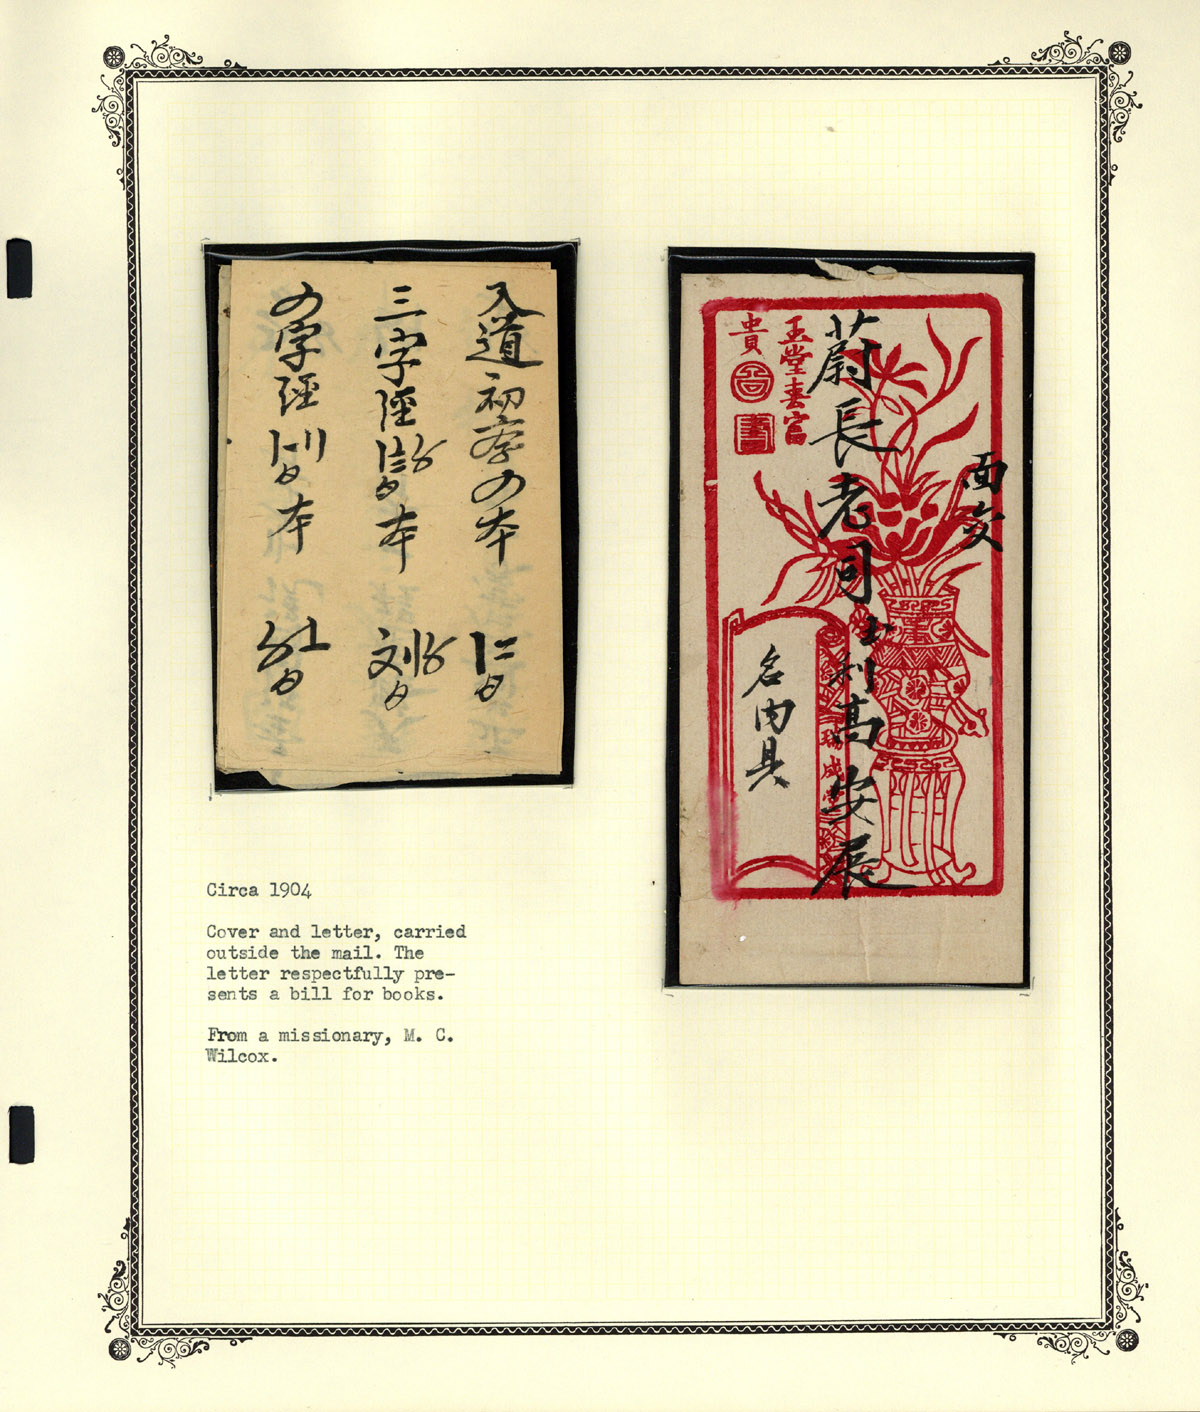 入道初學の本
三字經
本
の字經
本
面交
蔚長老司
利高安展
玉堂春富
貴
名内具
瑞成
Circa 1904
Cover and letter, carried
outside the mail. The
letter respectfully pre-
sents a bill for books.
From a missionary, M. C.
Wilcox.